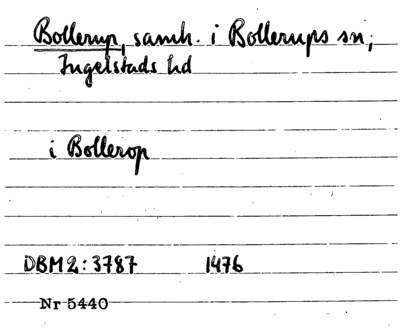 Bollerup, samh. i Bollerups sn,
Ingelstads hd
i Bollerop
DBM 2:3787 1476
Nr 5440